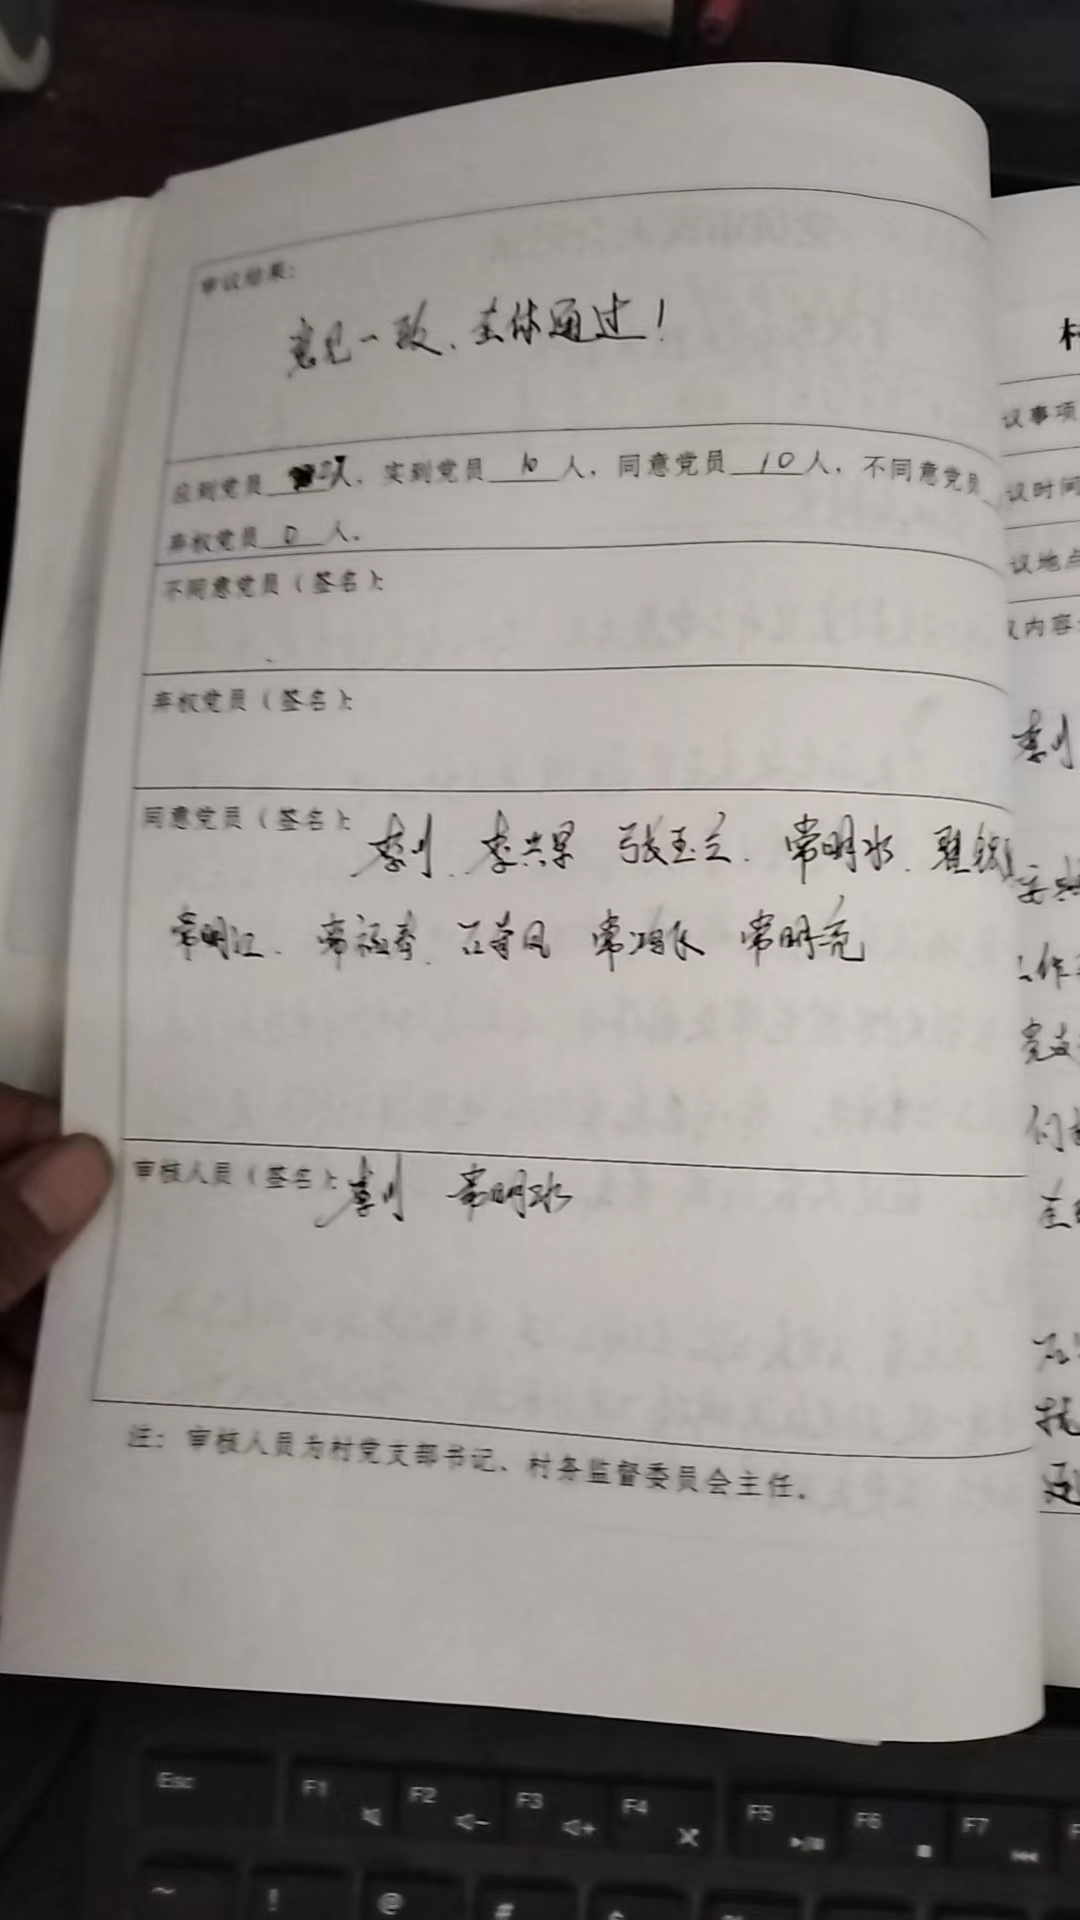 审议结果：
意见一致、全体通过！
应到党员 人，实到党员 10 人，同意党员 10 人，不同意党员
弃权党员 0 人。
不同意党员（签名）：
弃权党员（签名）：
同意党员（签名）： 李川、李共早 张玉立、常明水、
常明江、常福春、 常明亮
审核人员（签名）： 李川 常明水
注：审核人员为村党支部书记、村务监督委员会主任。
村
议事项
议时间
议地点
议内容
李川
工作
党支
们
Esc F1 F2 F3 F4 F5 F6 F7
~ ! @ #